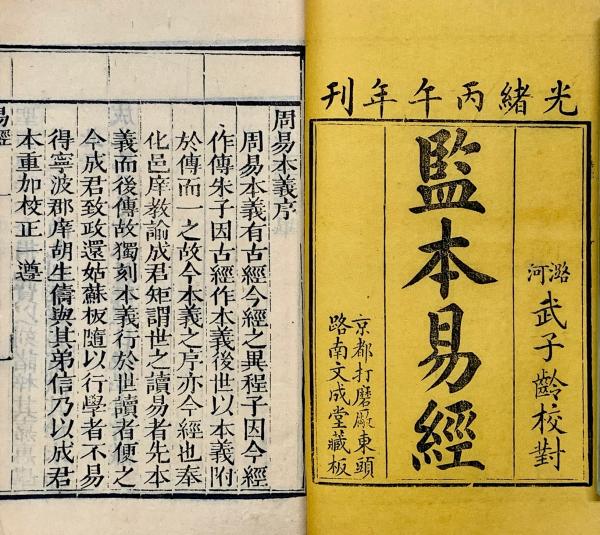 光緒丙午年刊
潞河武子齡校對
監本易經
京都打磨厰東頭
路南文成堂藏板
周易本義序
周易本義有古經今經之異程子因今經
作傳朱子因古經作本義後世以本義附
於傳而一之故今本義之序亦今經也奉
化邑庠教諭成君矩謂世之讀易者先本
義而後傳故獨刻本義行於世讀者便之
今成君致政還姑蘇板隨以行學者不易
得寧波郡庠胡生儔與其弟信乃以成君
本重加校正遵
易經